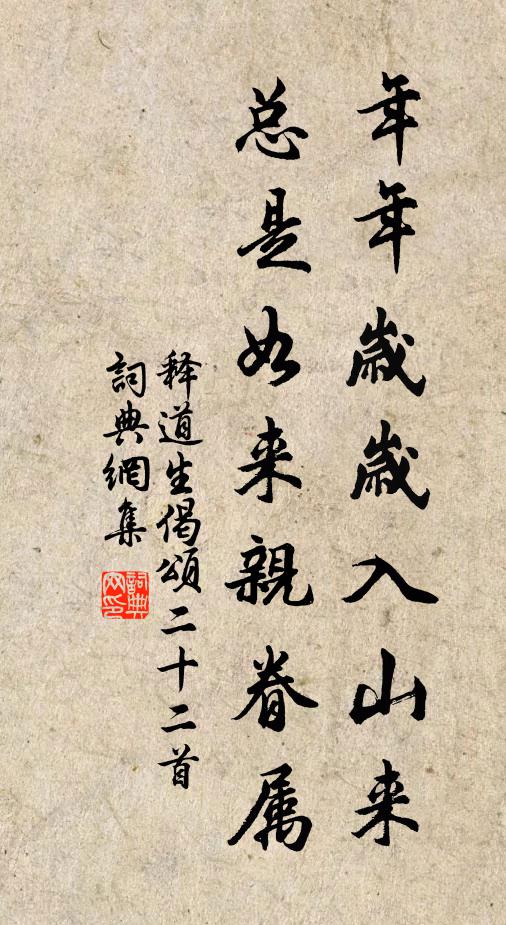 年年歳歳入山来
总是如来親眷属
释道生偈頌二十二首
詞典網集
詞典网印